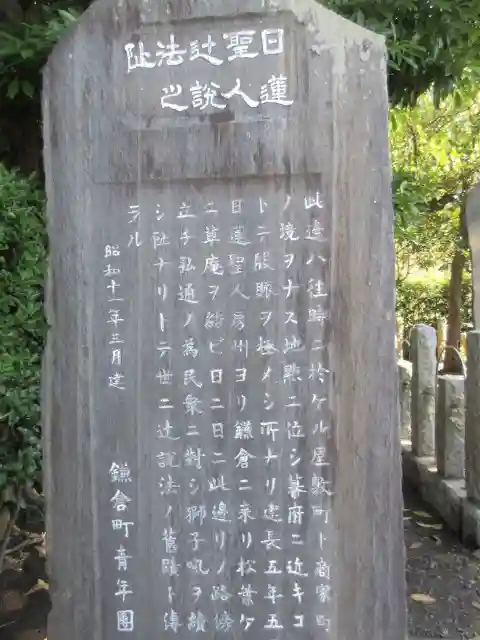 日蓮
聖人
辻説
法之
址
此邊ハ往時ニ於ケル屋敷町ト商家町
ノ境ヲナス地點ニ位シ幕府ニ近キコ
トテ殷賑ヲ極メシ所ナリ建長五年五
日蓮聖人房州ヨリ鎌倉ニ来リ松葉ケ
ニ草庵ヲ結ビ日ニ日ニ此邊リノ路傍
立チ弘通ノ為民衆ニ對シ獅子吼ヲ續
シ址ナリトテ世ニ辻説法ノ舊蹟ト傳
ヲル
昭和十一年三月建
鎌倉町青年團